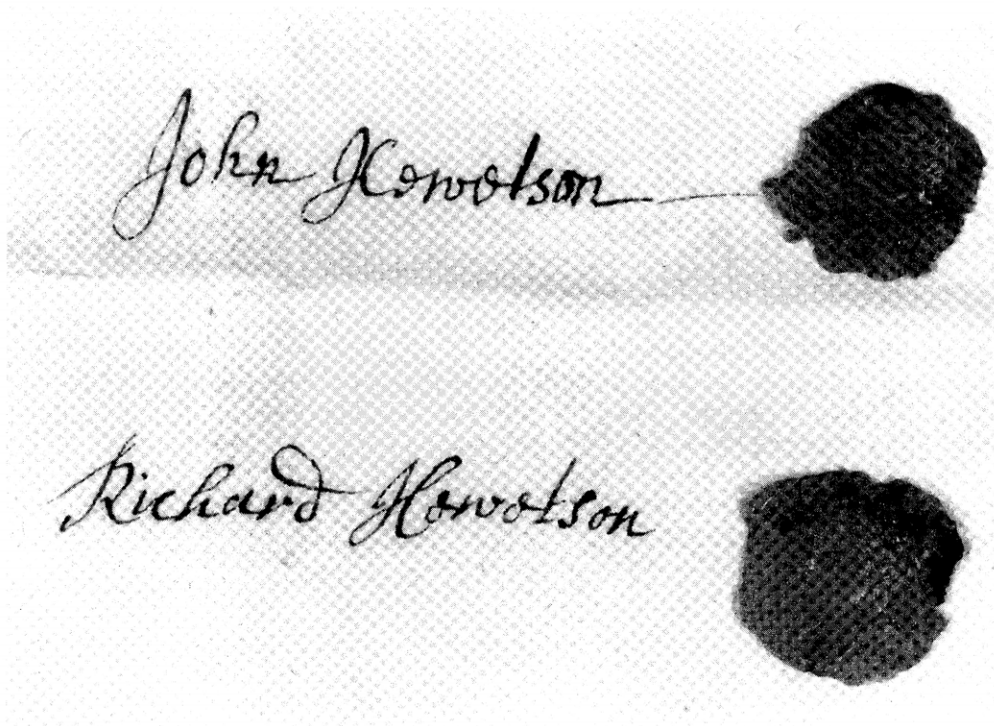 John Hewetson
Richard Hewetson